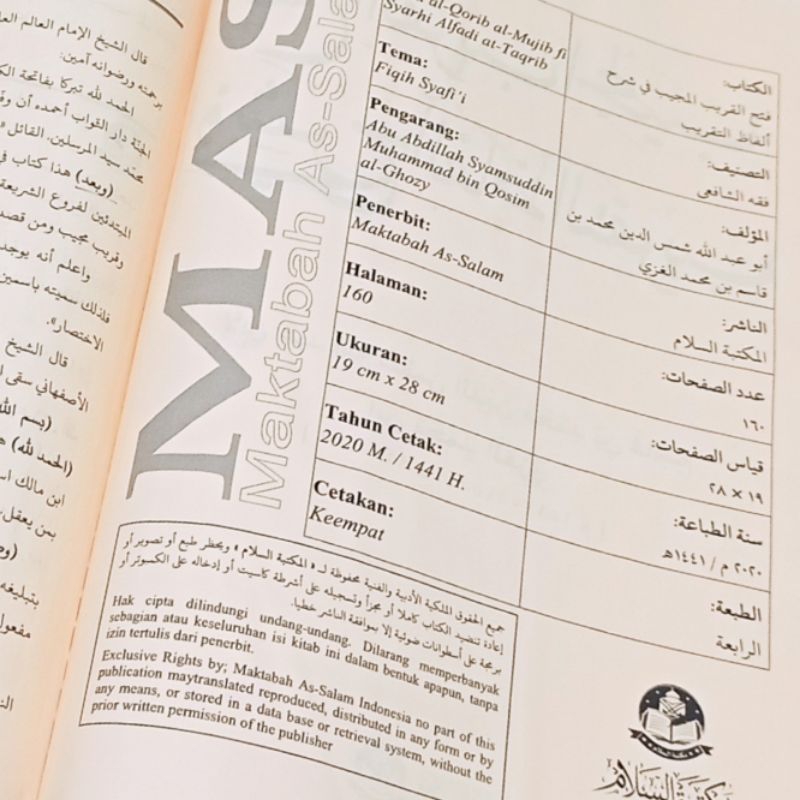 قال الشيخ الإمام العالم
برحمته ورضوانه آمين:
الحمد لله تبركا بفاتحة
الجنة دار الثواب أحمده أن
محمد سيد المرسلين. القائل
(وبعد) هذا كتاب في
المبتدئين لفروع الشريعة
وقريب مجيب ومن قصد
واعلم أنه يوجد
فلذلك سميته باسمين
الاختصار».
قال الشيخ
الأصفهاني سقى
(بسم الله
(الحمد لله)
ابن مالك
بمن يعقل
بتبليغه
مفعول
MAS
Maktabah As-Sala
al-Qorib al-Mujib fi
Syarhi Alfadi at-Taqrib
Tema:
Fiqih Syafi'i
Pengarang:
Abu Abdillah Syamsuddin
Muhammad bin Qosim
al-Ghozy
Penerbit:
Maktabah As-Salam
Halaman:
160
Ukuran:
19 cm x 28 cm
Tahun Cetak:
2020 M. / 1441 H.
Cetakan:
Keempat
الكتاب:
فتح القريب المجيب في شرح
ألفاظ التقريب
التصنيف:
فقه الشافعي
المؤلف:
أبو عبد الله شمس الدين محمد بن
قاسم بن محمد الغزي
الناشر:
المكتبة السلام
عدد الصفحات:
١٦٠
قياس الصفحات:
١٩ × ٢٨
سنة الطباعة:
٢٠٢٠ م / ١٤٤١هـ
الطبعة:
الرابعة
جميع الحقوق الملكية الأدبية والفنية محفوظة لـ « المكتبة السلام » ويحظر طبع أو تصوير أو
إعادة تنضيد الكتاب كاملا أو مجزأ وتسجيله على أشرطة كاسيت أو إدخاله على الكمبيوتر أو
برمجة على أسطوانات ضوئية إلا بموافقة الناشر خطيا.
Hak cipta dilindungi undang-undang. Dilarang memperbanyak
sebagian atau keseluruhan isi kitab ini dalam bentuk apapun, tanpa
izin tertulis dari penerbit.
Exclusive Rights by; Maktabah As-Salam Indonesia no part of this
publication maytranslated reproduced, distributed in any form or by
any means, or stored in a data base or retrieval system, without the
prior written permission of the publisher